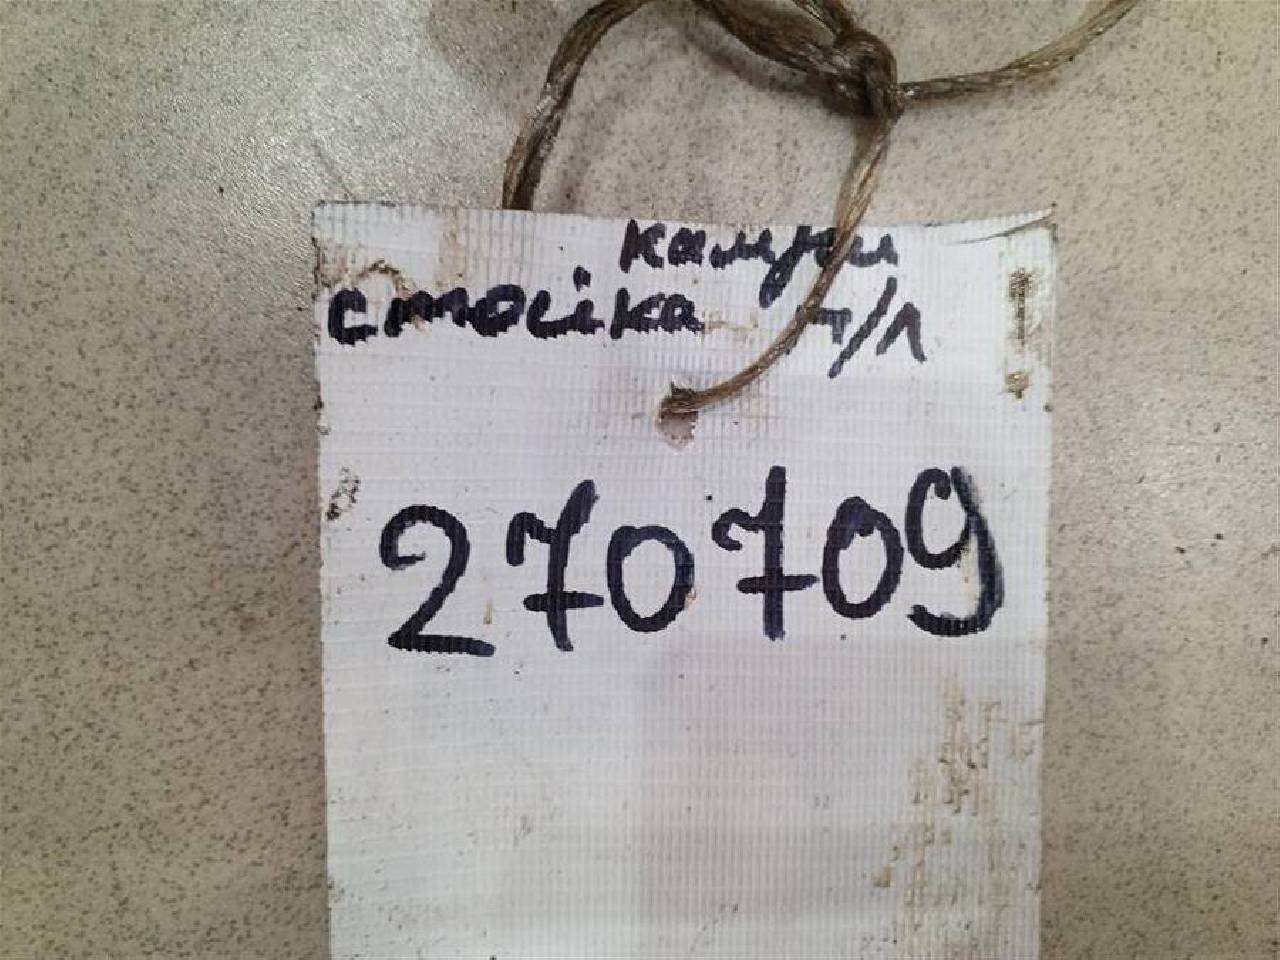 камри
стойка п/л
270709